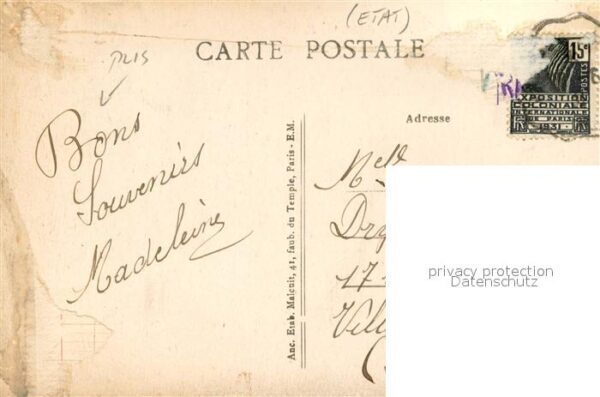 (ETAT)
CARTE POSTALE
PLIS
15c
POSTES
EXPOSITION
COLONIALE
INTERNATIONALE
DE PARIS
1931
Adresse
Bons
Souvenirs
Madeleine
Anc. Etab. Malcuit, 41, faub. du Temple, Paris - E.M.
Melle
17
privacy protection
Datenschutz